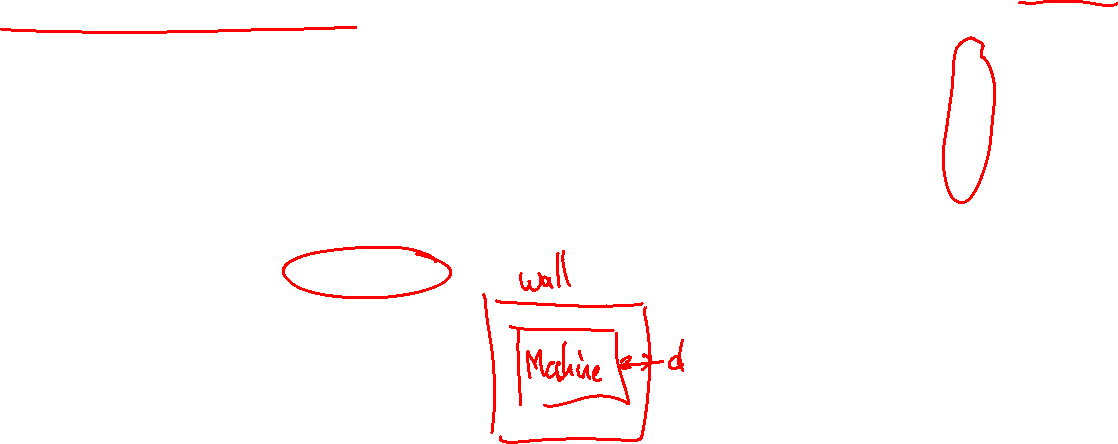 wall
Machine
d